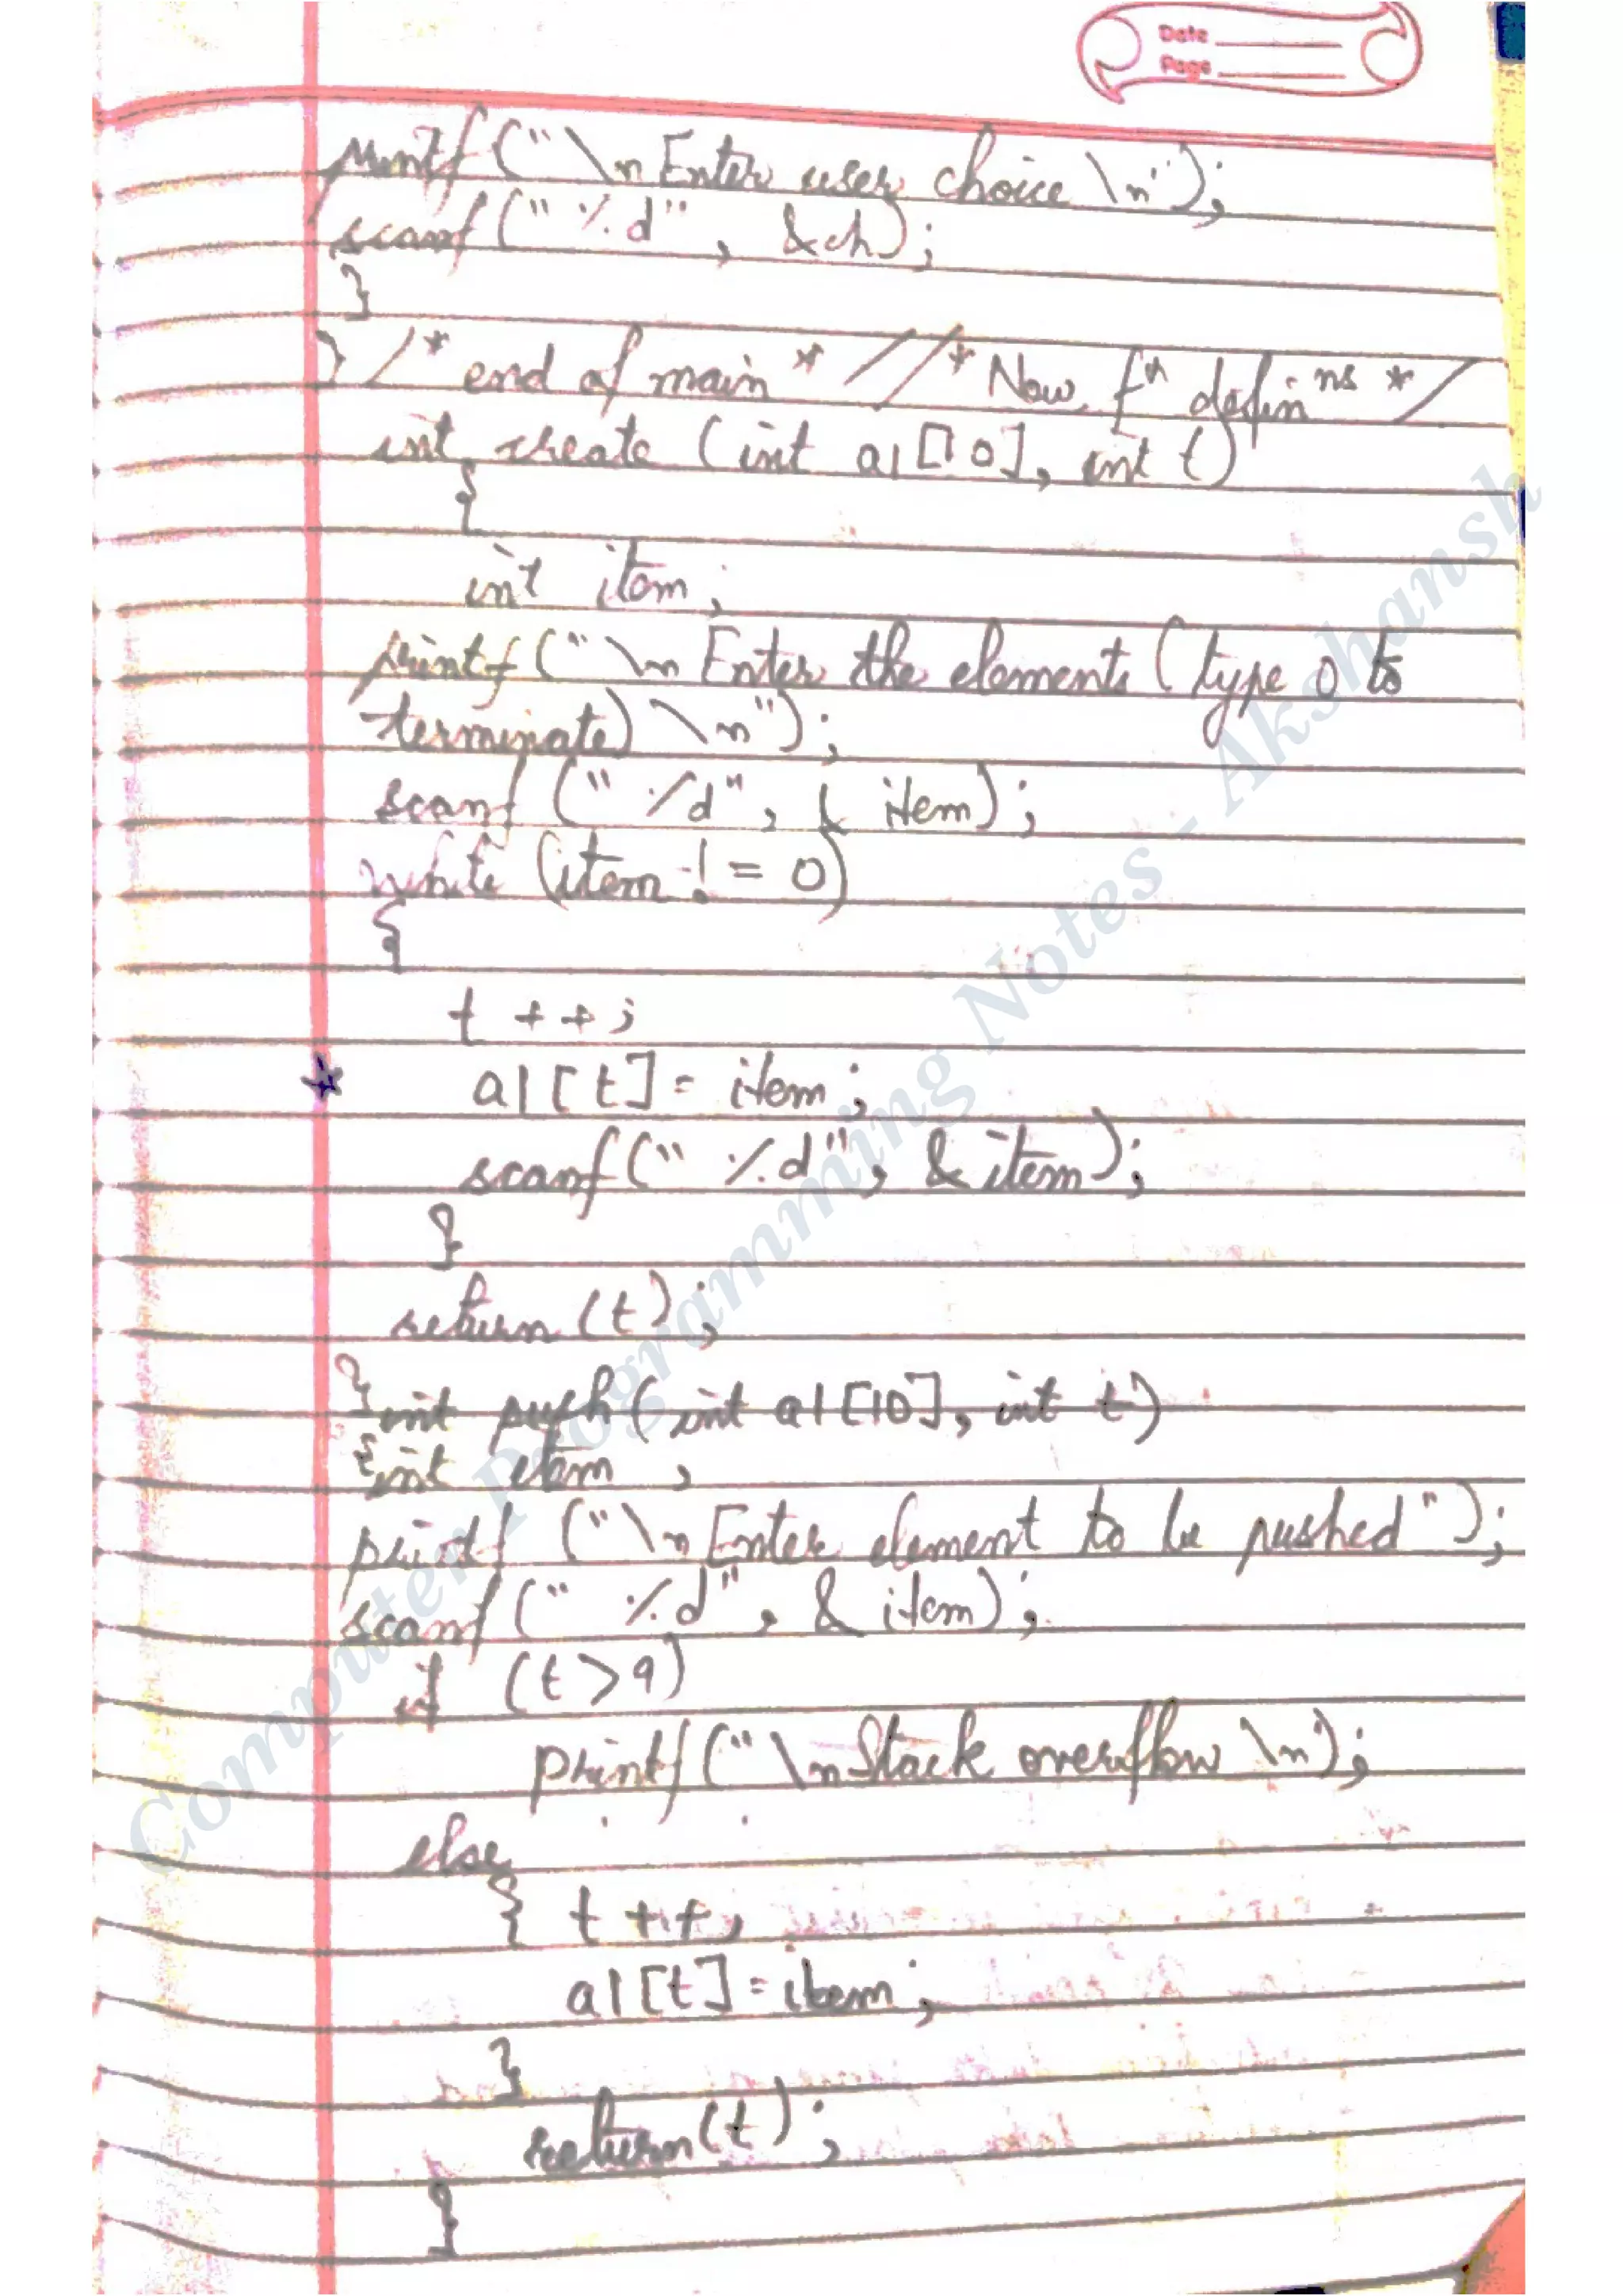 Date
Page
printf("\n Enter user choice \n");
scanf("%d", &ch);
}
} /* end of main */ /* Now fn definns */
int create (int a1[10], int t)
{
int item;
printf("\n Enter the elements (type 0 to
terminate) \n");
scanf ("%d", & item);
while (item != 0)
{
t ++;
a1[t] = item;
scanf("%d", &item);
}
return (t);
} int push(int a1[10], int t)
{int item ;
printf ("\n Enter element to be pushed");
scanf ("%d", & item);
if (t>9)
printf("\nStack overflow \n");
else
{ t ++;
a1[t] = item;
}
return(t);
}
Computer Programming Notes - Akshansh